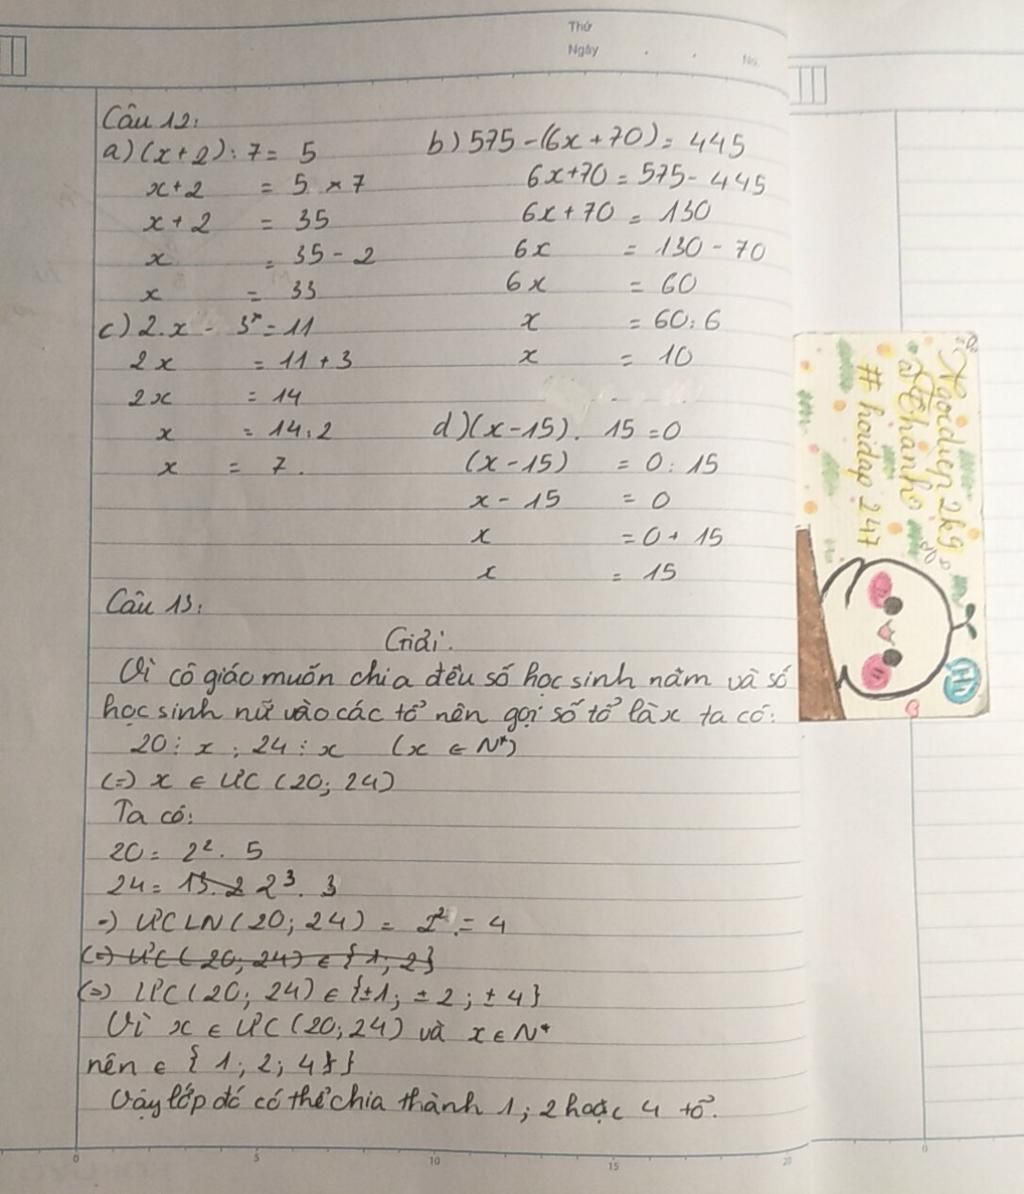 Thứ
Ngày
No.
Câu 12:
a) (x+2) : 7 = 5
x+2 = 5 × 7
x + 2 = 35
x = 35 - 2
x = 33
b) 575 - (6x + 70) = 445
6x+70 = 575 - 445
6x + 70 = 130
6x = 130 - 70
6x = 60
x = 60 : 6
x = 10
c) 2.x - 3 = 11
2x = 11 + 3
2x = 14
x = 14 : 2
x = 7.
d) (x - 15) . 15 = 0
(x - 15) = 0 : 15
x - 15 = 0
x = 0 + 15
x = 15
Câu 13:
Giải.
Vì cô giáo muốn chia đều số học sinh nằm và số
học sinh nữ vào các tổ nên gọi số tổ là x ta có:
20 ⋮ x ; 24 ⋮ x (x ∈ N*)
(=) x ∈ ƯC (20; 24)
Ta có:
20 = 2². 5
24 = 13.2 2³. 3
=) ƯCLN (20; 24) = 2² = 4
(=) ƯC (20; 24) ∈ {1; 2}
(=) ƯC (20; 24) ∈ {±1; ±2; ±4}
Vì x ∈ ƯC (20; 24) và x ∈ N*
nên ∈ {1; 2; 4}}
Vậy lớp đó có thể chia thành 1; 2 hoặc 4 tổ.
Ngocdiep2k9
# hoidap247
0 5 10 15 20
0